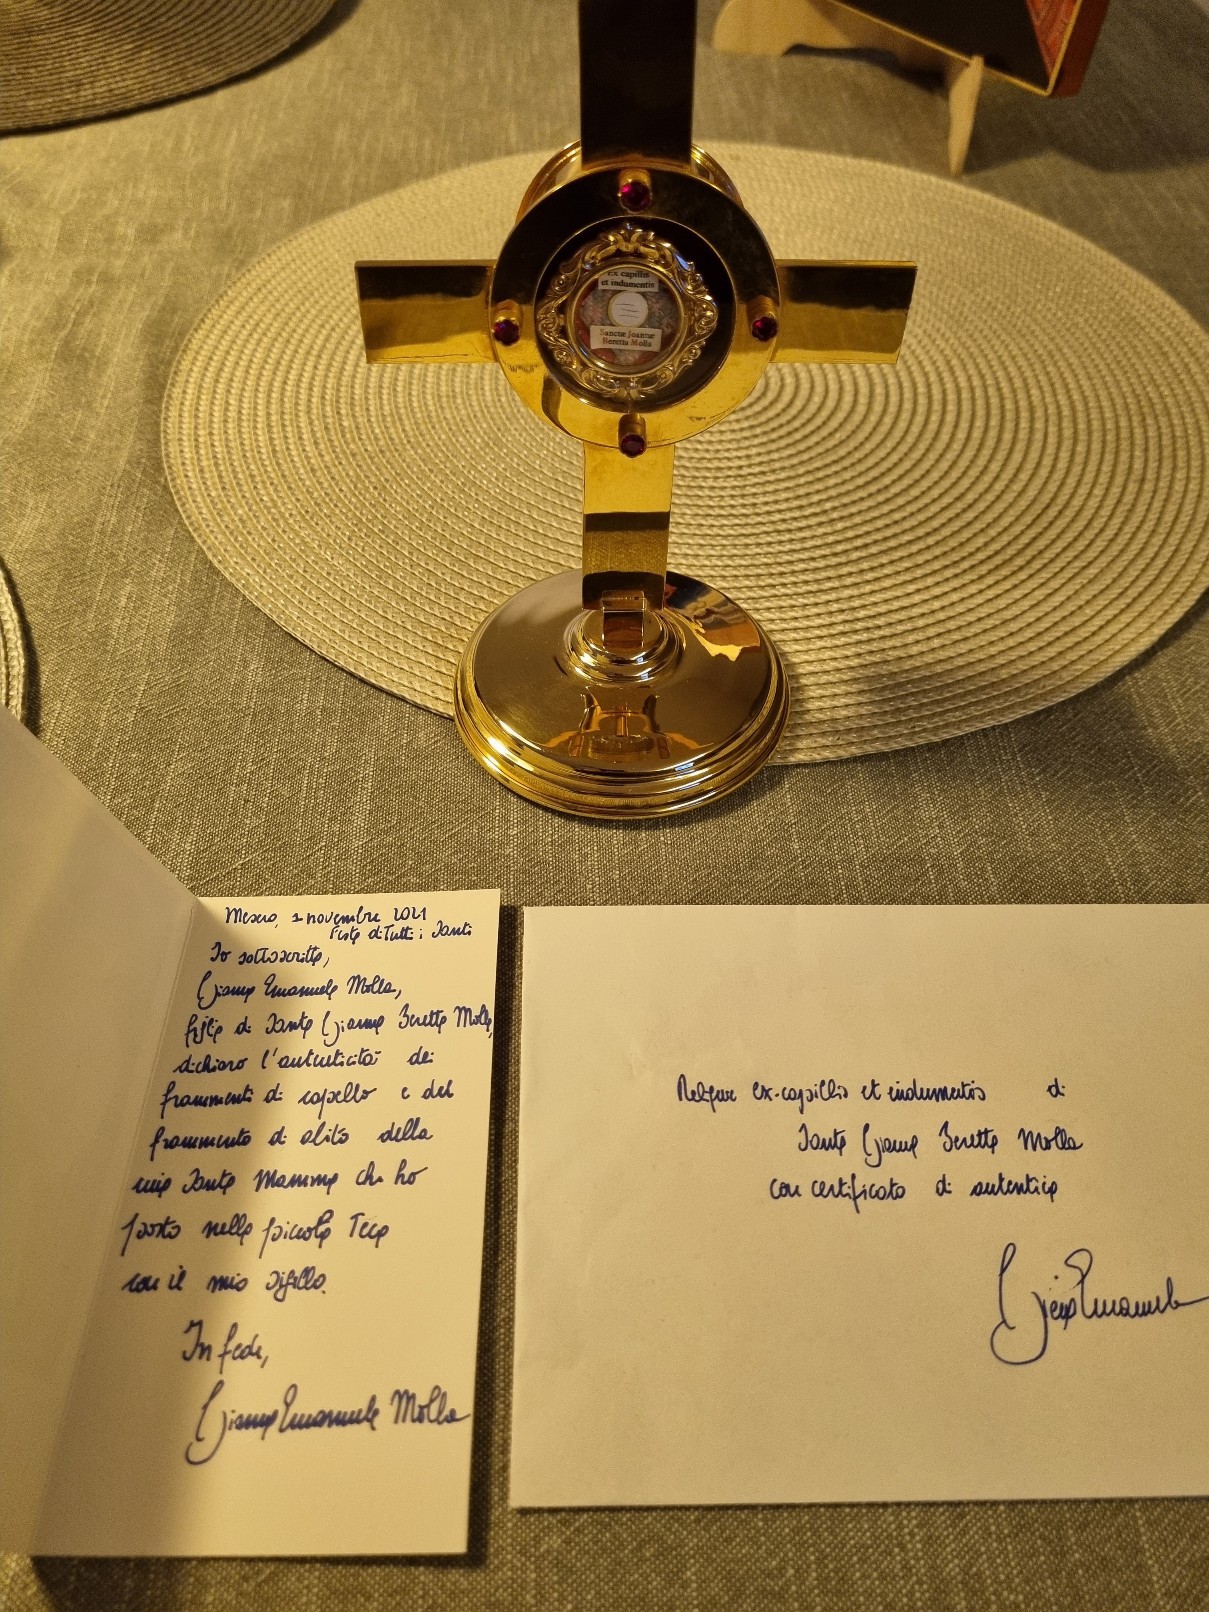 Ex capillis
et indumentis
Sanctæ Joannæ
Beretta Molla
Mesero, 1 novembre 2021
Festa di Tutti i Santi
Io sottoscritta,
Gianna Emanuela Molla,
figlia di Santa Gianna Beretta Molla,
dichiaro l'autenticità dei
frammenti di capello e del
frammento di abito della
mia Santa Mamma che ho
posto nella piccola Teca
con il mio sigillo.
In fede,
Gianna Emanuela Molla
Reliquie ex-capillis et indumentis di
Santa Gianna Beretta Molla
con certificato di autentica
Gianna Emanuela